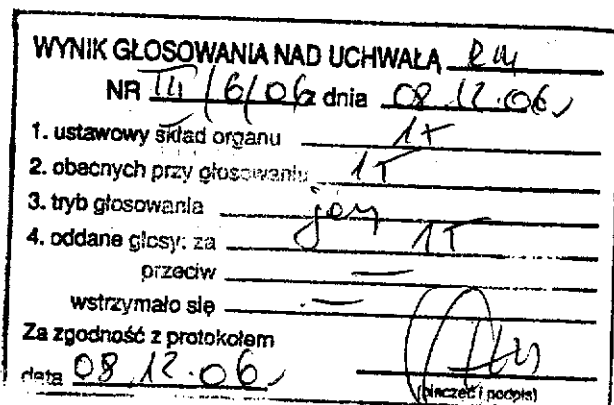 WYNIK GŁOSOWANIA NAD UCHWAŁĄ RM
NR III/6/06 z dnia 08.12.06
1. ustawowy skład organu 15
2. obecnych przy głosowaniu 15
3. tryb głosowania
4. oddane głosy: za 15
przeciw —
wstrzymało się —
Za zgodność z protokołem
data 08.12.06
(pieczęć i podpis)